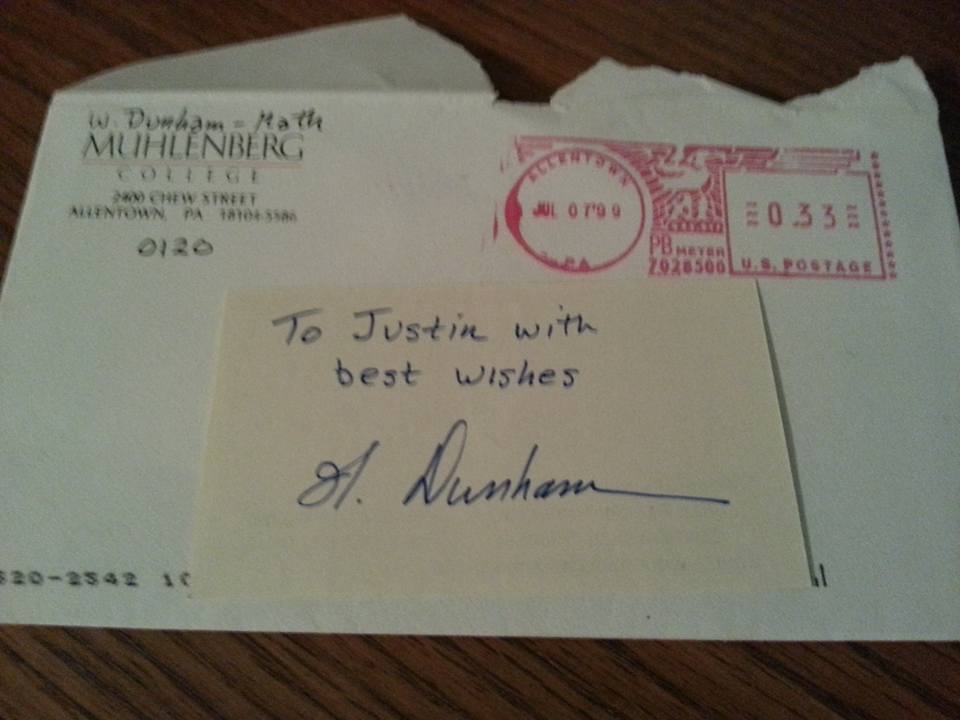 W. Dunham - Math
MUHLENBERG
COLLEGE
2400 CHEW STREET
ALLENTOWN, PA 18104-5586
0120
ALLENTOWN
JUL 07'99
PA
PB METER
7028500
0.33
U.S. POSTAGE
To Justin with
best wishes
W. Dunham
520-2542